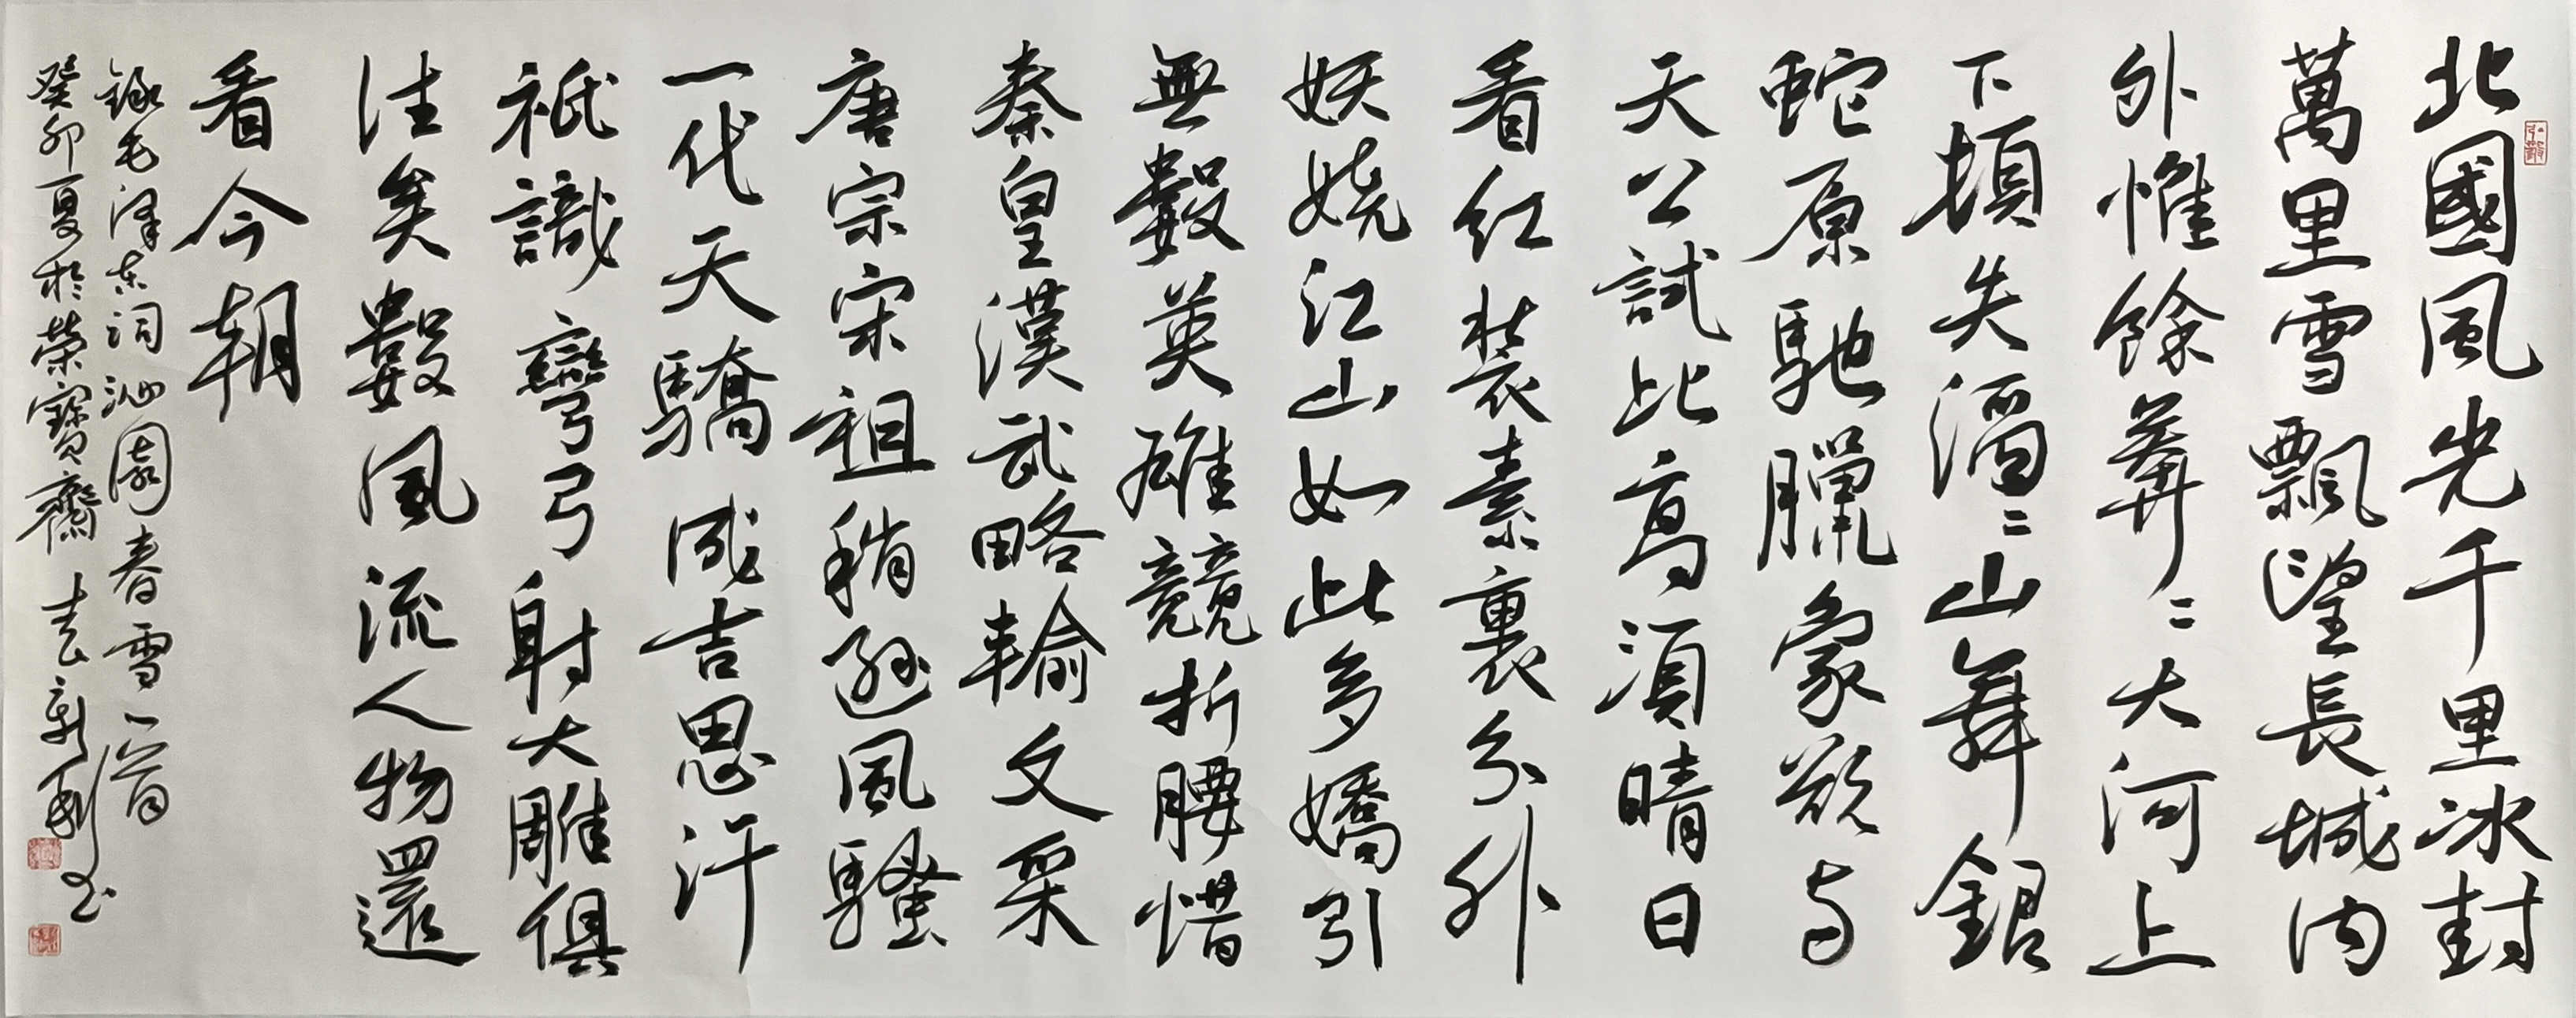 弘毅
北國風光千里冰封
萬里雪飄望長城內
外惟餘莽〻大河上
下頓失滔〻山舞銀
蛇原馳臘象欲与
天公試比高須晴日
看紅裝素裹分外
妖嬈江山如此多嬌引
無數英雄競折腰惜
秦皇漢武略輸文采
唐宗宋祖稍遜風騷
一代天驕成吉思汗
祇識彎弓射大雕俱
往矣數風流人物還
看今朝
錄毛澤东詞沁園春雪一首
癸卯夏於榮寶齋书